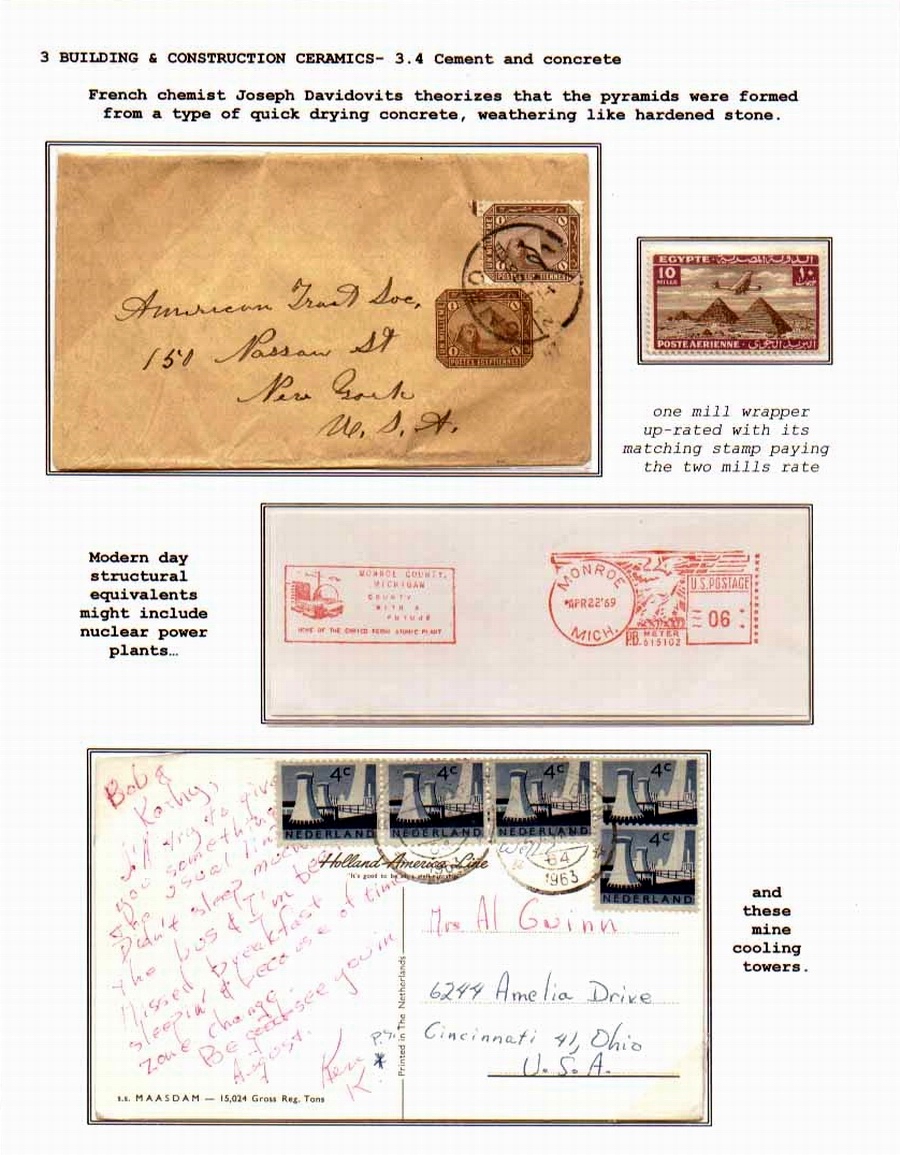 3 BUILDING & CONSTRUCTION CERAMICS- 3.4 Cement and concrete
French chemist Joseph Davidovits theorizes that the pyramids were formed
from a type of quick drying concrete, weathering like hardened stone.
American Tract Soc,
150 Nassau St
New York
U. S. A.
POSTES EGYPTIENNES
POSTES EGYPTIENNES
EGYPTE الدولة المصرية
10
MILLS
POSTE AERIENNE البريد الجوى
one mill wrapper
up-rated with its
matching stamp paying
the two mills rate
Modern day
structural
equivalents
might include
nuclear power
plants…
MONROE COUNTY,
MICHIGAN
COUNTY
WITH A
FUTURE
HOME OF THE ENRICO FERMI ATOMIC PLANT
MONROE
APR22'69
MICH.
U.S.POSTAGE
06
P.B. METER
515102
4c
NEDERLAND
4c
NEDERLAND
4c
NEDERLAND
4c
4c
NEDERLAND
64
1963
Holland-America Line
"It's good to be on a
Bob &
Kathy,
I'll try to give
you something
the usual
Didn't sleep much
the bus & Jim
Missed breakfast
sleepin' & because of time
zone change.
Be good see you in
August.
Ken
K.
P.S.
*
Mrs Al Guinn
6244 Amelia Drive
Cincinnati 41, Ohio
U. S. A.
Printed in The Netherlands
s.s. MAASDAM — 15,024 Gross Reg. Tons
and
these
mine
cooling
towers.